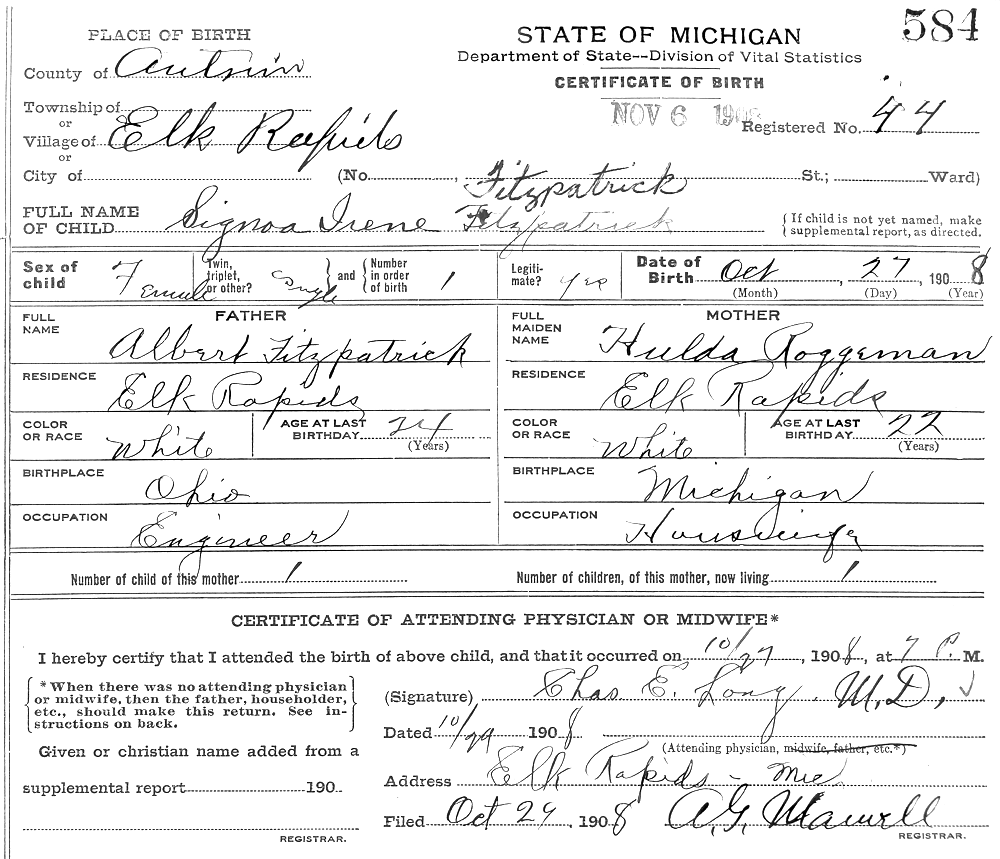 584
PLACE OF BIRTH
STATE OF MICHIGAN
Department of State--Division of Vital Statistics
County of Antrim
CERTIFICATE OF BIRTH
Township of
or
NOV 6 190
Registered No. 44
Village of Elk Rapids
or
City of (No. , Fitzpatrick St.; Ward)
FULL NAME OF CHILD Signoa Irene Fitzpatrick
{If child is not yet named, make supplemental report, as directed.
Sex of child Female
Twin, triplet, or other? Single } and { Number in order of birth 1
Legitimate? yes
Date of Birth Oct , 27 , 1908
(Month) (Day) (Year)
FATHER
FULL NAME Albert Fitzpatrick
RESIDENCE Elk Rapids
COLOR OR RACE White
AGE AT LAST BIRTHDAY 24 (Years)
BIRTHPLACE Ohio
OCCUPATION Engineer
MOTHER
FULL MAIDEN NAME Hulda Roggeman
RESIDENCE Elk Rapids
COLOR OR RACE White
AGE AT LAST BIRTHDAY 22 (Years)
BIRTHPLACE Michigan
OCCUPATION Housewife
Number of child of this mother 1
Number of children, of this mother, now living 1
CERTIFICATE OF ATTENDING PHYSICIAN OR MIDWIFE*
I hereby certify that I attended the birth of above child, and that it occurred on 10/27 , 1908, at 7 P. M.
{*When there was no attending physician
or midwife, then the father, householder,
etc., should make this return. See in-
structions on back.}
(Signature) Chas E. Long. M.D.
Dated 10/29 1908
(Attending physician, midwife, father, etc.*)
Given or christian name added from a
supplemental report 190
REGISTRAR.
Address Elk Rapids - Mic
Filed Oct 29 , 1908 A.G.
REGISTRAR.